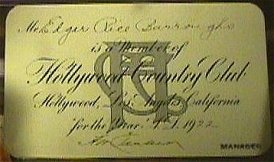 Mr Edgar Rice Burroughs
is a Member of
Hollywood Country Club
Hollywood, Los Angeles, California
for the Year A.D. 1922
MANAGER